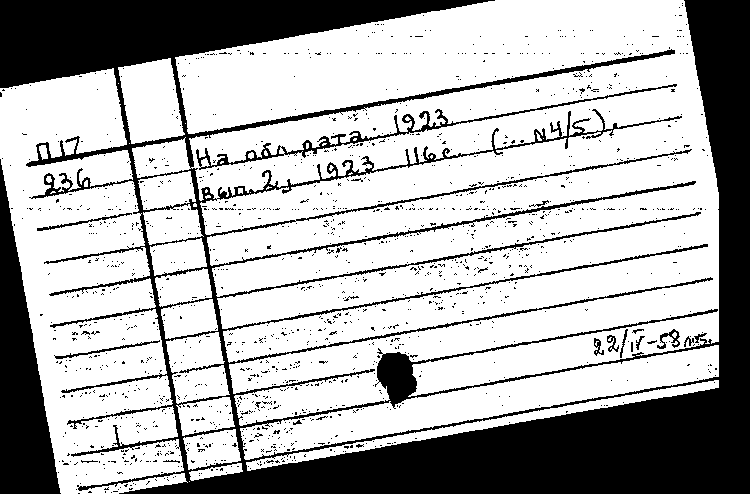 П17
236
На обл. дата: 1923
Вып. 2., 1923 116 с. (... №4/5).
22/IV-58